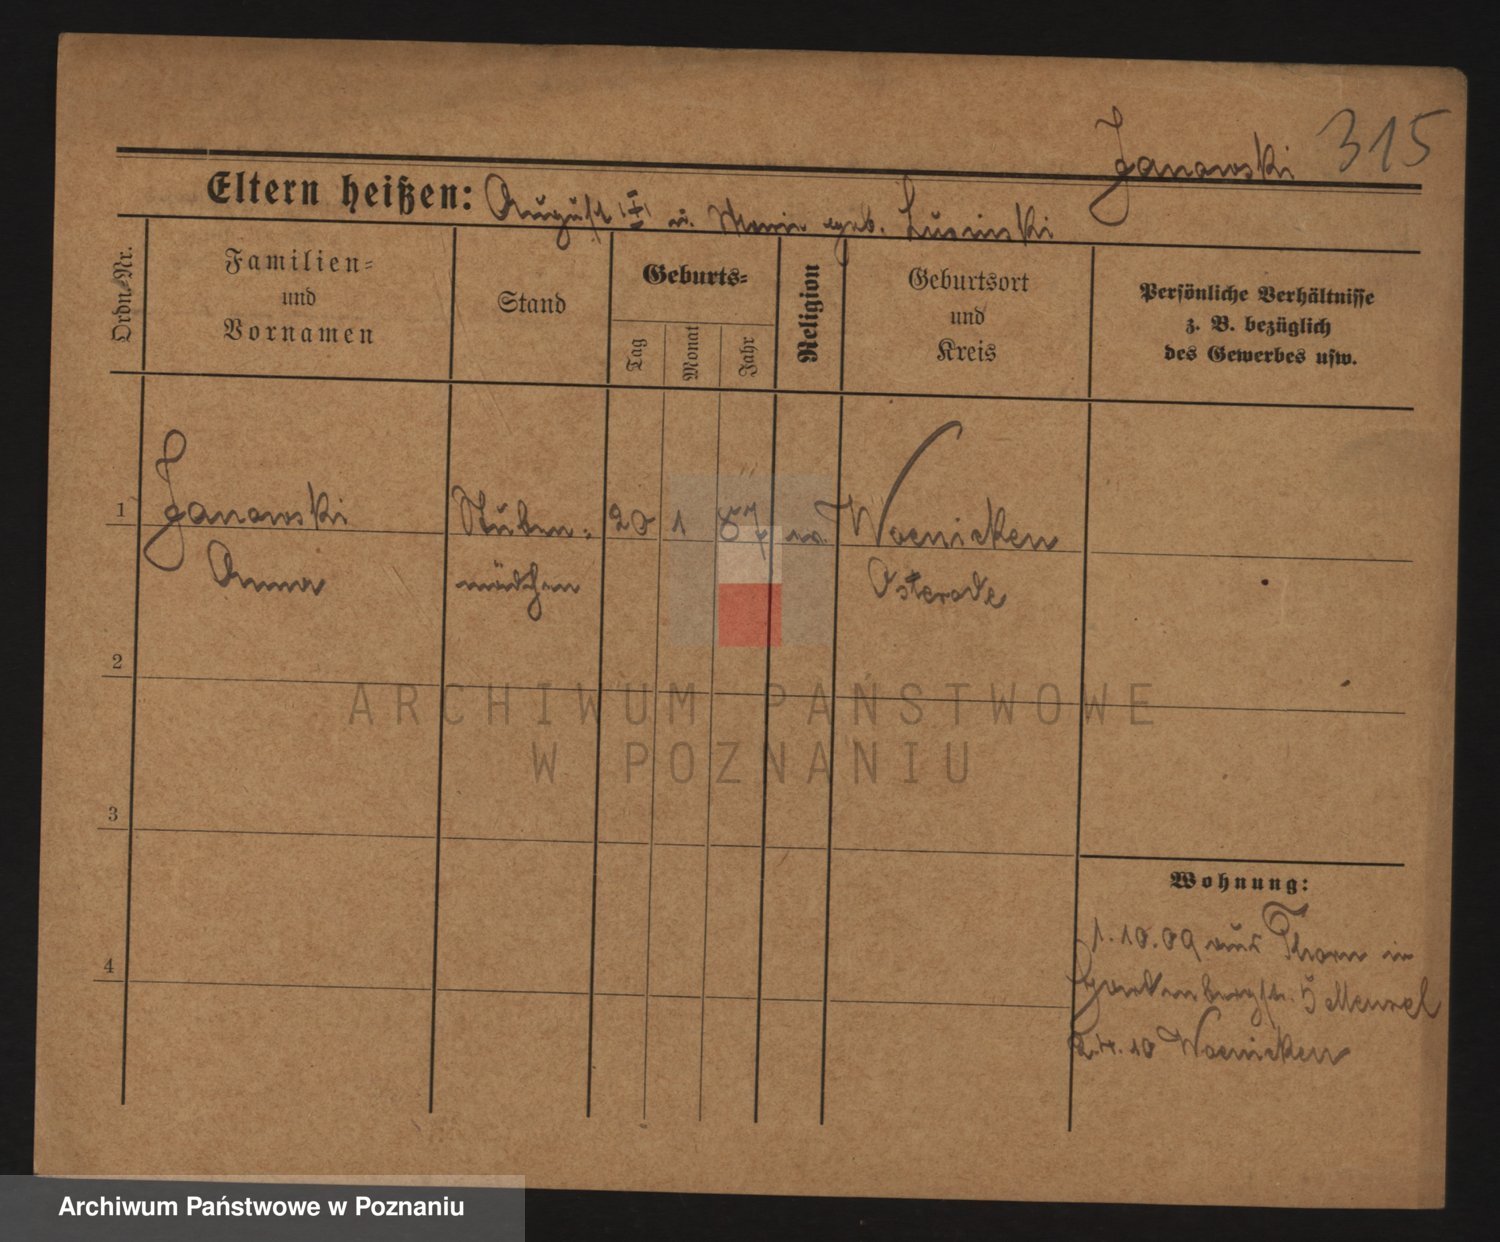 Janowski 315
Eltern heißen: August (†) u. Marie geb. Lusinski
Ordn.-Nr.
Familien-
und
Vornamen
Stand
Geburts-
Tag
Monat
Jahr
Religion
Geburtsort
und
Kreis
Persönliche Verhältnisse
z. B. bezüglich
des Gewerbes usw.
1 Janowski Stuben- 20 1 87 Woenicken
Anna mädchen Osterode
2
3
4
Wohnung:
1.10.09 aus Thorn in
5 Menzel
2.4.10 Woenicken
ARCHIWUM PAŃSTWOWE
W POZNANIU
Archiwum Państwowe w Poznaniu